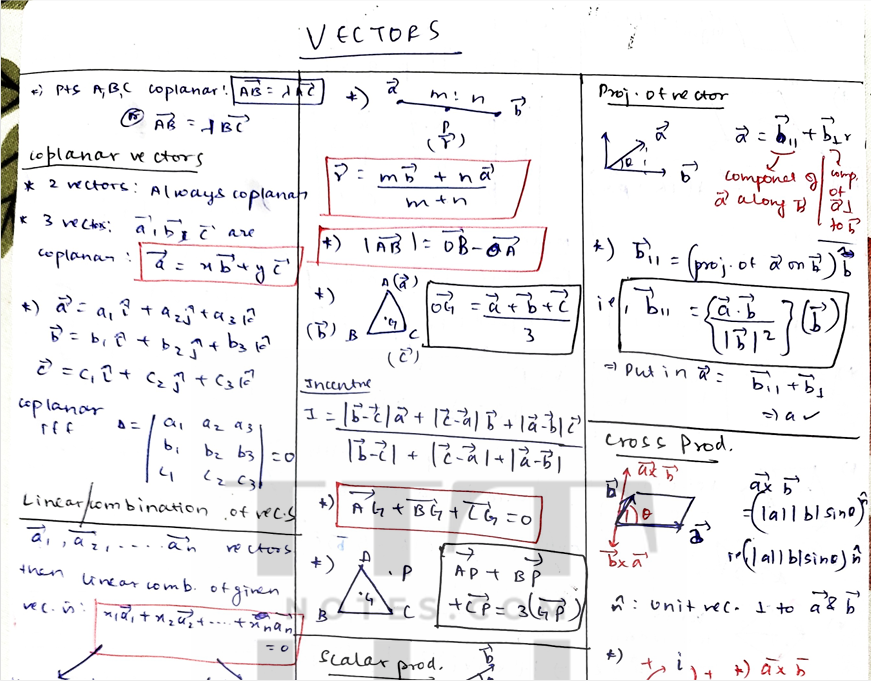 VECTORS
*) Pts A,B,C coplanar: AB⃗ = λAC⃗
or AB⃗ = λBC⃗
coplanar vectors
* 2 vectors: Always coplanar
* 3 vectors: a⃗, b⃗, c⃗ are
coplanar: a⃗ = xb⃗ + yc⃗
*) a⃗ = a₁î + a₂ĵ + a₃k̂
b⃗ = b₁î + b₂ĵ + b₃k̂
c⃗ = c₁î + c₂ĵ + c₃k̂
coplanar
iff Δ = | a₁ a₂ a₃ |
| b₁ b₂ b₃ | = 0
| c₁ c₂ c₃ |
Linear combination of vecs
a⃗₁, a⃗₂, .... a⃗n vectors
then linear comb. of given
vec. is: x₁a⃗₁ + x₂a⃗₂ + .... + xna⃗n
= 0
*) a⃗ m : n b⃗
P
(r⃗)
r⃗ = mb⃗ + na⃗
m+n
*) |AB⃗| = OB⃗ - OA⃗
*) A(a⃗)
(b⃗) B G C
(c⃗)
OG⃗ = a⃗ + b⃗ + c⃗
3
Incentre
I = |b⃗-c⃗|a⃗ + |c⃗-a⃗|b⃗ + |a⃗-b⃗|c⃗
|b⃗-c⃗| + |c⃗-a⃗| + |a⃗-b⃗|
*) AG⃗ + BG⃗ + CG⃗ = 0
*) A . P
.G
B C
AP⃗ + BP⃗
+ CP⃗ = 3(GP⃗)
NOTES.COM
Scalar prod.
b⃗
Proj. of vector
a⃗
θ
b⃗
a⃗ = b⃗|| + b⃗⊥r
component of
a⃗ along b⃗
comp.
of
a⃗⊥
to b⃗
*) b⃗|| = (proj. of a⃗ on b⃗) b̂
ie, b⃗|| = {a⃗.b⃗ / |b⃗|²} (b⃗)
⇒ Put in a⃗ = b⃗|| + b⃗⊥
⇒ a ✓
Cross Prod.
a⃗xb⃗
b⃗
θ
a⃗
b⃗xa⃗
a⃗xb⃗
= (|a||b|sinθ) n̂
ie (|a||b|sinθ) n̂
n̂ : Unit vec. ⊥ to a⃗ & b⃗
*) + i + *) a⃗xb⃗